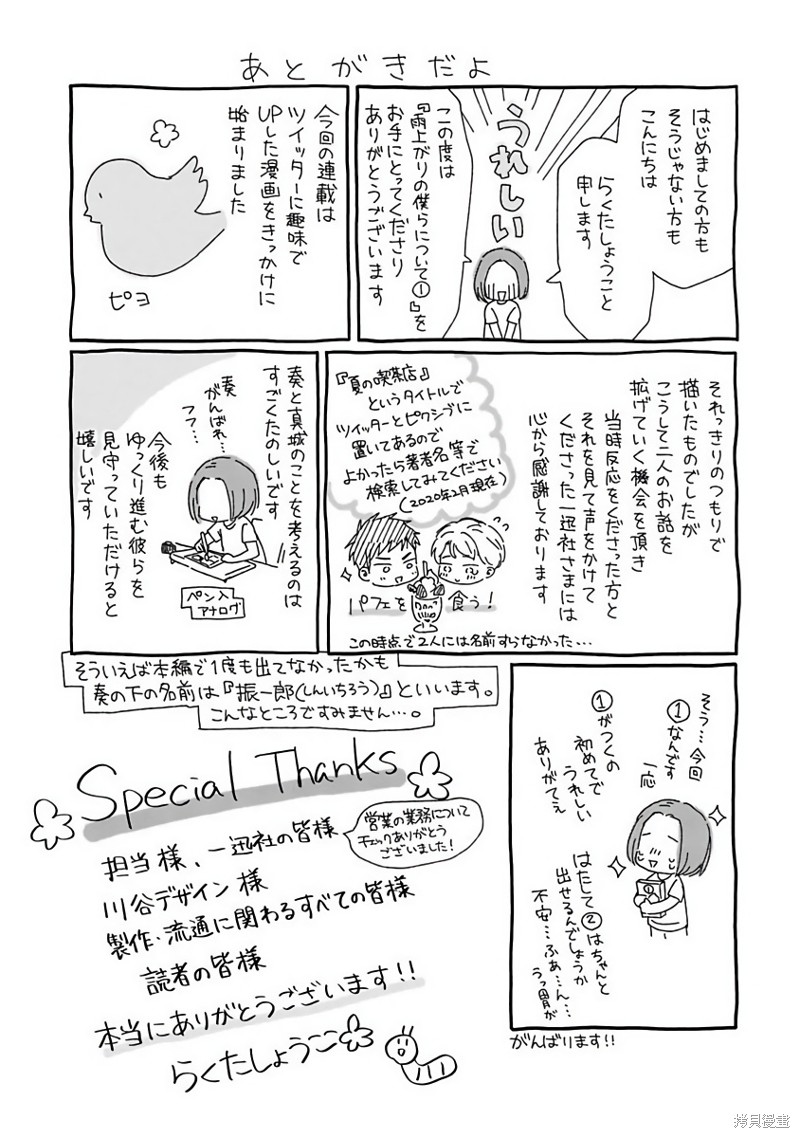 あとがきだよ
はじめましての方も
そうじゃない方も
こんにちは
らくたしょうこと
申します
うれしい
この度は
『雨上がりの僕らについて①』を
お手にとってくださり
ありがとうございます
今回の連載は
ツイッターに趣味で
UPした漫画をきっかけに
始まりました
ピヨ
それっきりのつもりで
描いたものでしたが
こうして二人のお話を
拡げていく機会を頂き
当時反応をくださった方と
それを見て声をかけて
くださった一迅社さまには
心から感謝しております
『夏の喫茶店』
というタイトルで
ツイッターとピクシブに
置いてあるので
よかったら著者名等で
検索してみてください
(2020年2月現在)
パフェを食う!
この時点で2人には名前すらなかった…
奏と真城のことを考えるのは
すごくたのしいです
奏
がんばれ…
フフ…
ペン入
アナログ
今後も
ゆっくり進む彼らを
見守っていただけると
嬉しいです
そういえば本編で1度も出てなかったかも
奏の下の名前は『振一郎(しんいちろう)』といいます。
こんなところですみません…。
そう…今回
①なんです
一応
①がつくの
初めてで
うれしい
ありがてえ
はたして②はちゃんと
出せるんでしょうか
不安…ふぁ…ん…
うっ胃が
がんばります!!
Special Thanks
担当様、一迅社の皆様
営業の業務について
チェックありがとう
ございました!
川谷デザイン様
製作・流通に関わるすべての皆様
読者の皆様
本当にありがとうございます!!
らくたしょうこ
拷貝漫畫